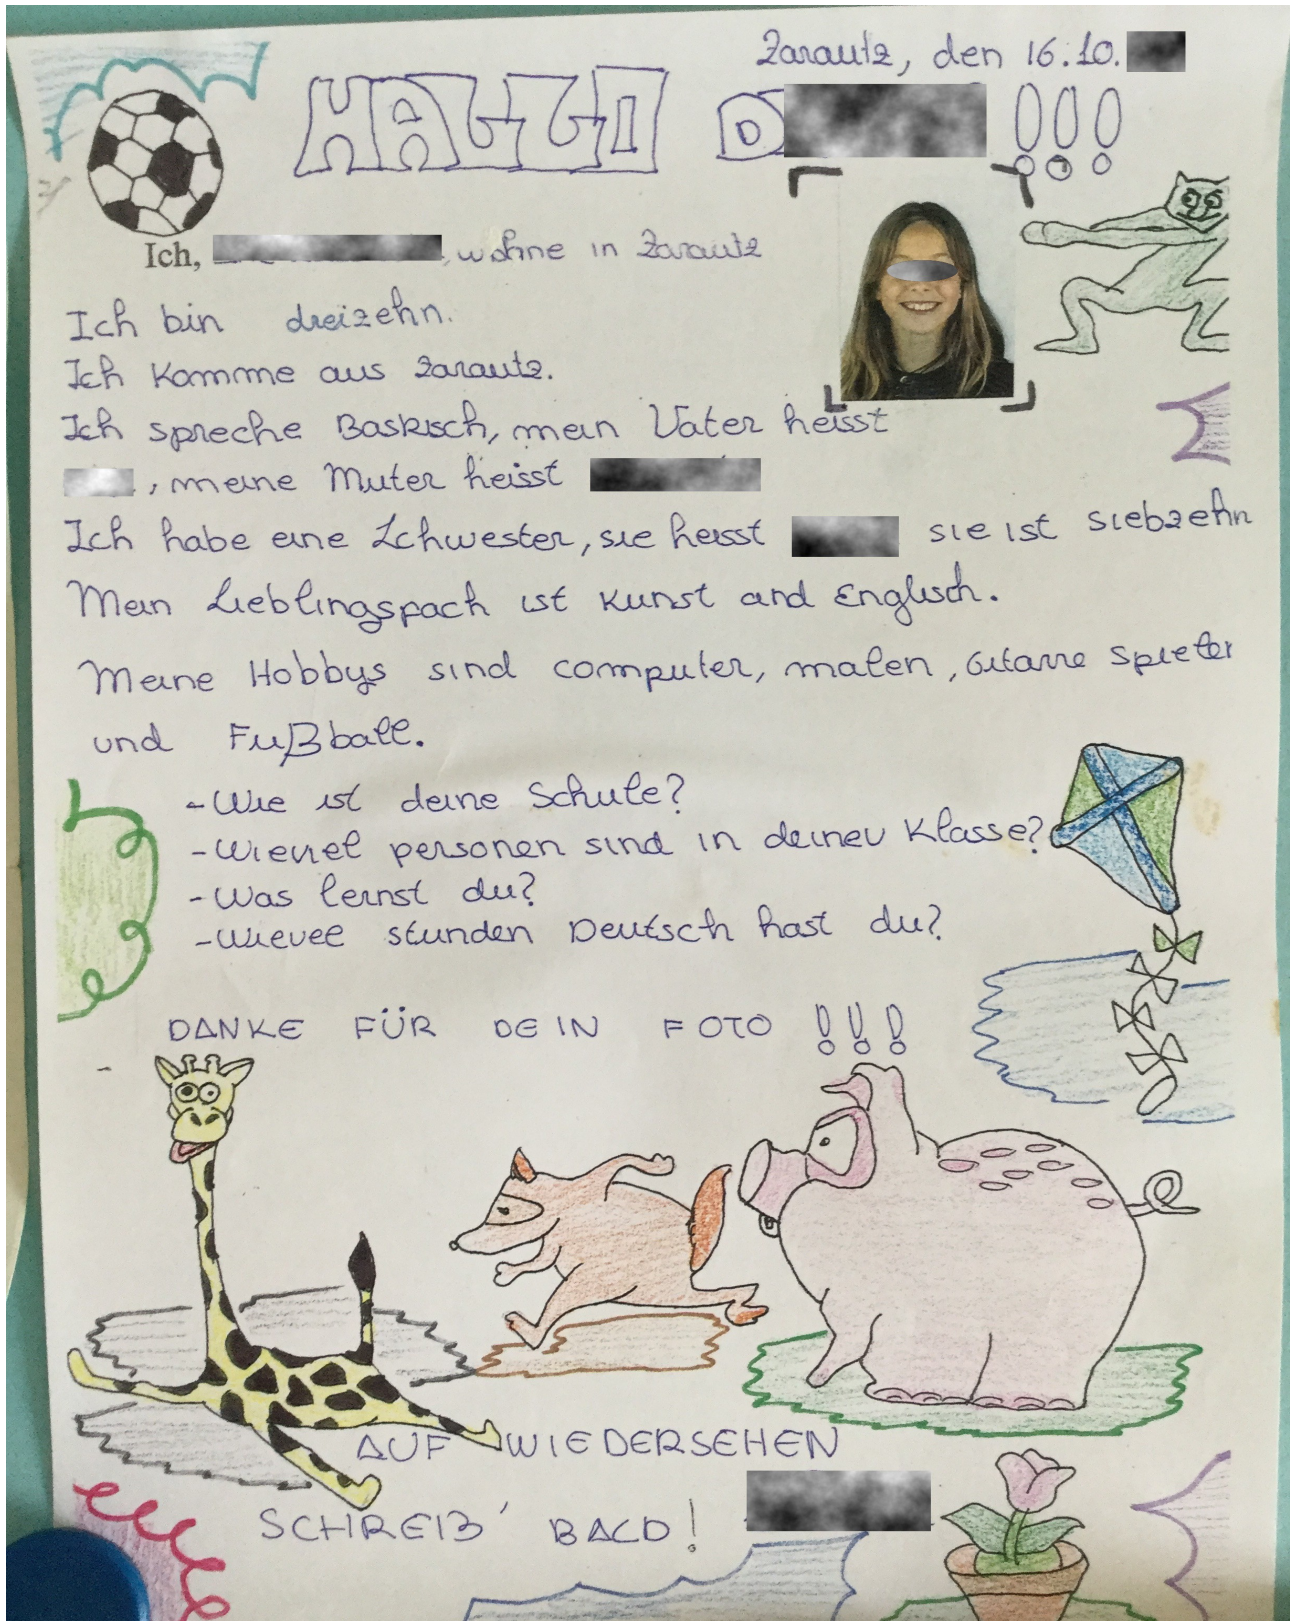 Zarautz, den 16.10.
HALLO D !!!
Ich, , wohne in Zarautz
Ich bin dreizehn.
Ich komme aus Zarautz.
Ich spreche Baskisch, mein Vater heisst
, meine Muter heisst
Ich habe eine Schwester, sie heisst sie ist siebzehn
Mein Lieblingspach ist Kunst and Englisch.
Meine Hobbys sind computer, malen, Gitarre spieler
und Fußball.
- Wie ist deine Schule?
- Wieviel personen sind in deiner Klasse?
- Was lernst du?
- Wieviel stunden Deutsch hast du?
DANKE FÜR DEIN FOTO !!!
AUF WIEDERSEHEN
SCHREIB' BALD!